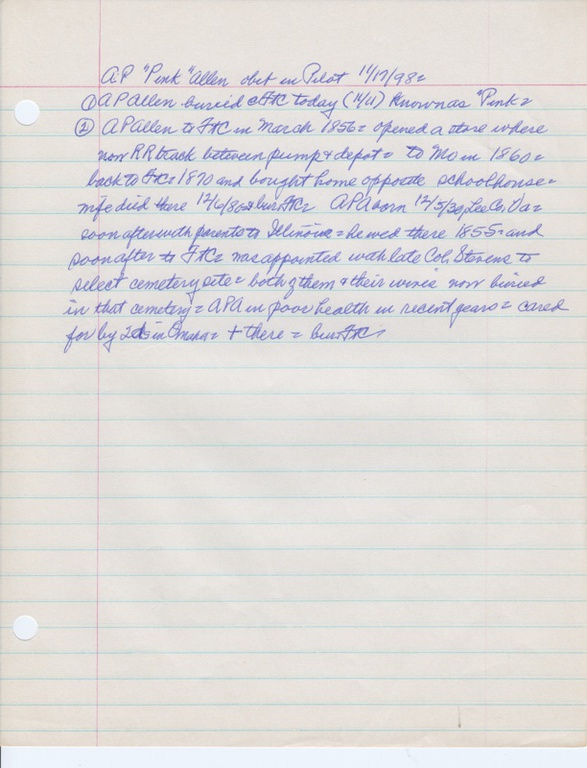 AP "Pink" Allen obit in Pilot 11/17/98=
① AP Allen buried @ FtC today (11/11) Known as "Pink=
② AP Allen to FtC in March 1856= opened a store where
now RR track between pump & depot= to Mo in 1860=
back to FtC= 1870 and bought home opposite schoolhouse=
wife died there 12/6/86= bur FtC= APA born 12/5/30 Lee Co. Va=
soon after with parents to Illinois= he wed there 1855= and
soon after to FtC= was appointed with late Col. Stevens to
select cemetery site= both of them & their wives now buried
in that cemetery= APA in poor health in recent years= cared
for by 2 ds in Omaha= + there= bur FtC=